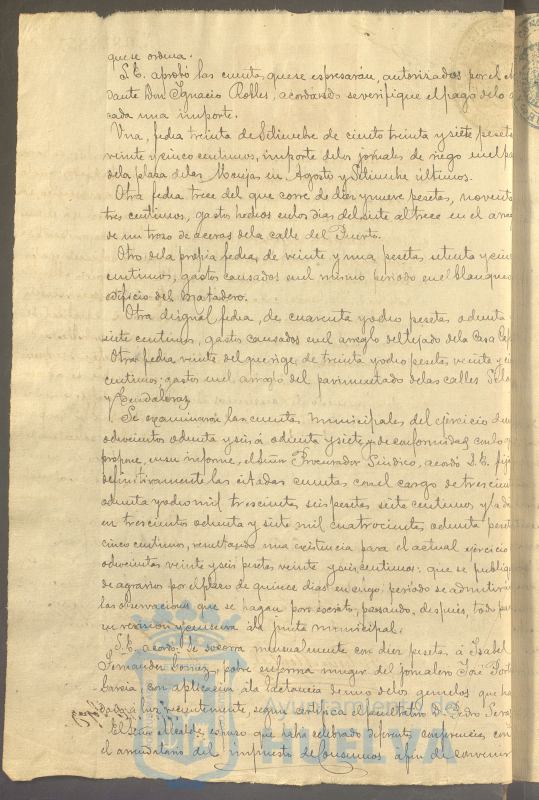 que se ordena.
S.E. aprobó las cuentas que se espresarán, autorizadas por el
dante Don Ignacio Robles, acordando se verifique el pago de lo
cada una importe.
Una, fecha treinta de Setiembre de ciento treinta y siete pesetas
veinte y cinco centimos, importe de los jornales de riego en el pa
de la plaza de las Monjas en Agosto y Setiembre últimos.
Otra fecha trece del que corre de diez y nueve pesetas, noventa
tres centimos, gastos hechos en los dias del siete al trece en el arre
de un trozo de aceras de la calle del Puerto.
Otro de la propia fecha, de veinte y una pesetas, setenta y cinco
centimos, gastos causados en el mismo periodo en el blanqueo
edificio del Matadero.
Otra de igual fecha, de cuarenta y ocho pesetas ochenta y
siete centimos, gastos causados en el arreglo del tejado de la Casa Cap
Otra fecha veinte del que rige, de treinta y ocho pesetas veinte y
centimos: gastos en el arreglo del pavimentado de las calles
y Cendaloraz
Se examinaron las cuentas municipales del ejercicio de
ochocientos ochenta y seis á ochenta y siete, y de conformidad con lo q
propone, en su informe, el Señor Procurador Sindico, acordó S.E. fijar
definitivamente las citadas cuentas con el cargo de trescientos
ochenta y ocho mil trescientas seis pesetas siete centimos y la data
en trescientos ochenta y siete mil cuatrocientas ochenta pesetas
cinco centimos, resultando una existencia para el actual ejercicio
ochocientas veinte y seis pesetas veinte y seis centimos: que se publique
de agravios por el plazo de quince dias en cuyo periodo se admitirán
las observaciones que se hagan por escrito, pasando, despues, todo para
su revision y censura á la junta municipal.
S.E. acordó se socorra mensualmente con diez pesetas á Isabel
Fernandez Gomez, pobre enferma muger del jornalero José
Garcia con aplicacion á la lactancia de uno de los gemelos que ha
dado á luz recientemente, segun certifica el facultativo D. Pedro
El Señor Alcalde espuso que habia celebrado diferentes conferencias con
el arrendatario del impuesto de Consumos á fin de convenir
Ayuntamiento de
HUELVA